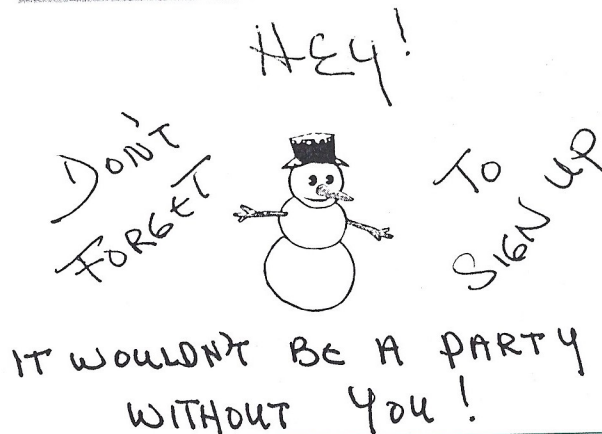 HEY!
DON'T
FORGET
TO
SIGN UP
IT WOULDN'T BE A PARTY
WITHOUT YOU!